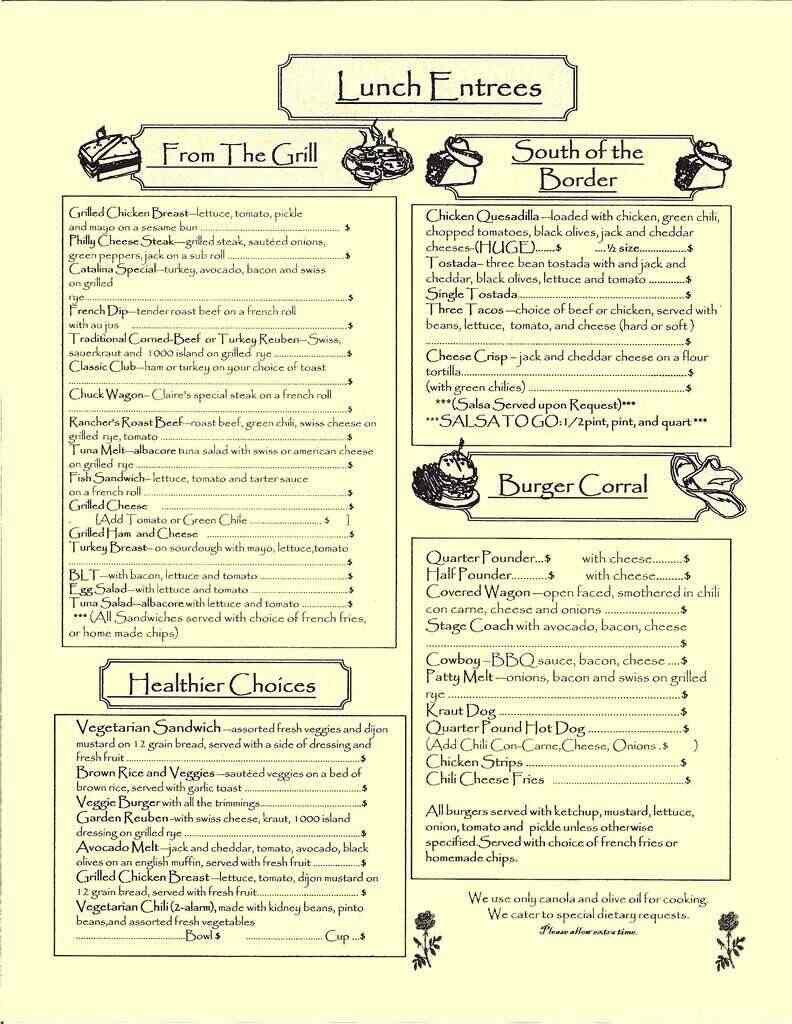 Lunch Entrees
From The Grill
Grilled Chicken Breast—lettuce, tomato, pickle
and mayo on a sesame bun ........................................ $
Philly Cheese Steak—grilled steak, sautéed onions,
green peppers, jack on a sub roll ........................................$
Catalina Special—turkey, avocado, bacon and swiss
on grilled
rye........................................$
French Dip—tender roast beef on a french roll
with au jus ........................................$
Traditional Corned-Beef or Turkey Reuben—Swiss,
sauerkraut and 1000 island on grilled rye ........................$
Classic Club—ham or turkey on your choice of toast
........................................$
Chuck Wagon– Claire's special steak on a french roll
........................................$
Rancher's Roast Beef—roast beef, green chili, swiss cheese on
grilled rye, tomato ........................................$
Tuna Melt—albacore tuna salad with swiss or american cheese
on grilled rye ........................................$
Fish Sandwich– lettuce, tomato and tarter sauce
on a french roll ........................................$
Grilled Cheese ........................................$
(Add Tomato or Green Chile ........................ $ )
Grilled Ham and Cheese ........................................$
Turkey Breast– on sourdough with mayo, lettuce,tomato
........................................$
BLT—with bacon, lettuce and tomato ........................$
Egg Salad—with lettuce and tomato ........................$
Tuna Salad—albacore with lettuce and tomato ............$
*** (All Sandwiches served with choice of french fries,
or home made chips)
Healthier Choices
Vegetarian Sandwich —assorted fresh veggies and dijon
mustard on 12 grain bread, served with a side of dressing and
fresh fruit ........................................$
Brown Rice and Veggies —sautéed veggies on a bed of
brown rice, served with garlic toast ........................$
Veggie Burger with all the trimmings........................$
Garden Reuben -with swiss cheese, kraut, 1000 island
dressing on grilled rye ........................................$
Avocado Melt—jack and cheddar, tomato, avocado, black
olives on an english muffin, served with fresh fruit ............$
Grilled Chicken Breast—lettuce, tomato, dijon mustard on
12 grain bread, served with fresh fruit........................$
Vegetarian Chili (2-alarm), made with kidney beans, pinto
beans,and assorted fresh vegetables
........................Bowl $ ........................ Cup ...$
South of the
Border
Chicken Quesadilla —loaded with chicken, green chili,
chopped tomatoes, black olives, jack and cheddar
cheeses-(HUGE).......$ ....½ size.................$
Tostada– three bean tostada with and jack and
cheddar, black olives, lettuce and tomato .............$
Single Tostada........................................$
Three Tacos —choice of beef or chicken, served with
beans, lettuce, tomato, and cheese (hard or soft )
........................................$
Cheese Crisp – jack and cheddar cheese on a flour
tortilla........................................$
(with green chilies) ........................................$
***(Salsa Served upon Request)***
***SALSA TO GO: 1/2 pint, pint, and quart ***
Burger Corral
Quarter Pounder...$ with cheese..........$
Half Pounder...........$ with cheese.........$
Covered Wagon —open faced, smothered in chili
con carne, cheese and onions ........................$
Stage Coach with avocado, bacon, cheese
........................................$
Cowboy –BBQ sauce, bacon, cheese ....$
Patty Melt —onions, bacon and swiss on grilled
rye ........................................$
Kraut Dog ........................................$
Quarter Pound Hot Dog ........................$
(Add Chili Con-Carne,Cheese, Onions .$ )
Chicken Strips ........................................$
Chili Cheese Fries ........................................$
All burgers served with ketchup, mustard, lettuce,
onion, tomato and pickle unless otherwise
specified.Served with choice of french fries or
homemade chips.
We use only canola and olive oil for cooking.
We cater to special dietary requests.
Please allow extra time.